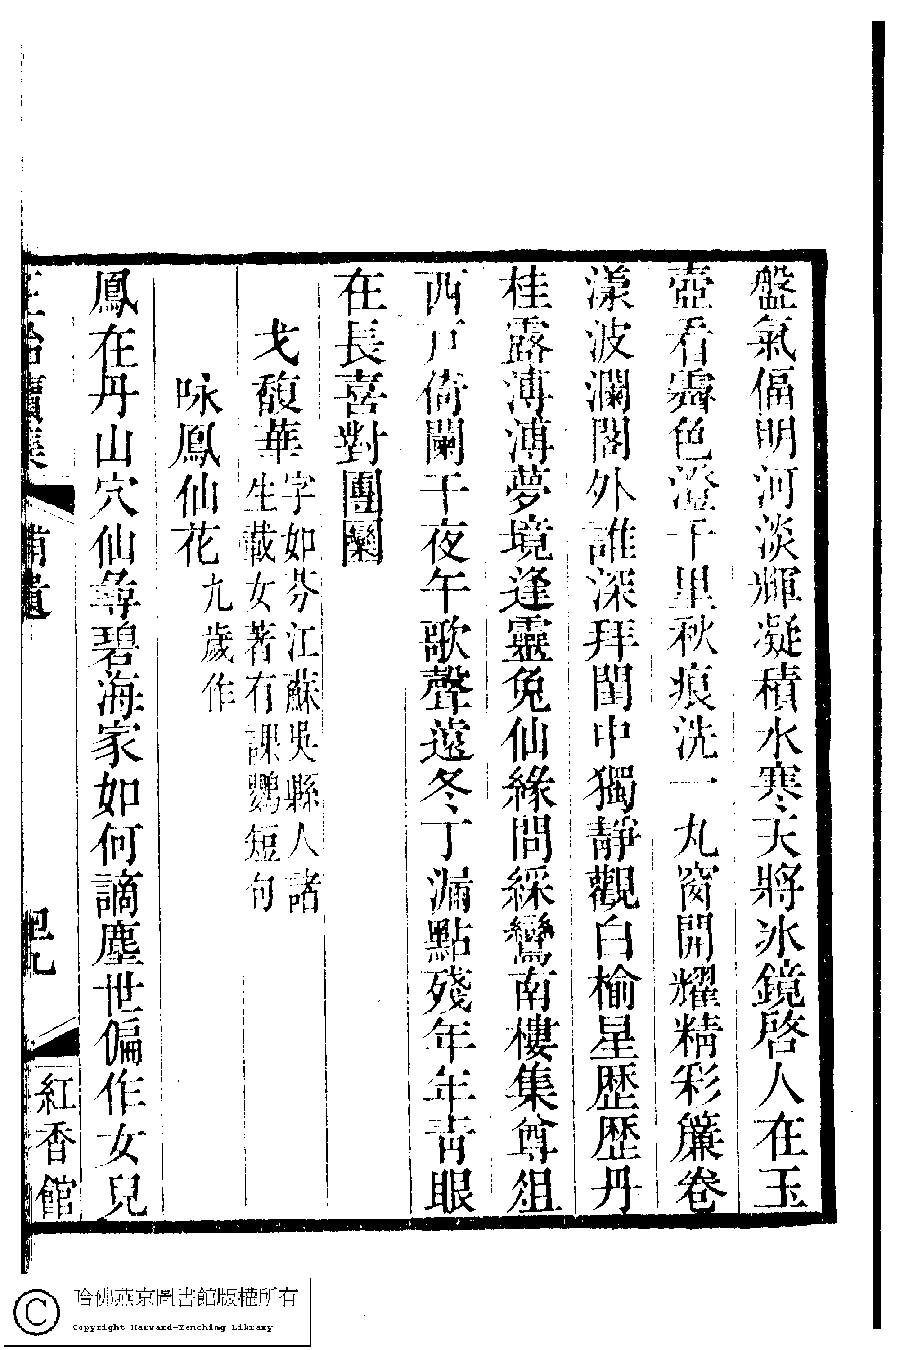 盤氣偪明河淡輝凝積水寒天將冰鏡啓人在玉
壺看霽色澄千里秋痕洗一丸窗開耀精彩簾卷
漾波瀾閣外誰深拜閨中獨靜觀白榆星歴歴丹
桂露漙漙夢境逢靈兔仙緣問綵鸞南樓集尊俎
西戸倚闌干夜午歌聲遠冬丁漏點殘年年靑眼
在長喜對團欒
戈馥華字如芬江蘇吳縣人諸
生載女著有課鸚短句
咏鳳仙花九歲作
鳳在丹山穴仙尋碧海家如何謫塵世偏作女兒
正始續集
補遺
紅香館
哈佛燕京圖書館版權所有
Copyright Harvard-Yenching Library